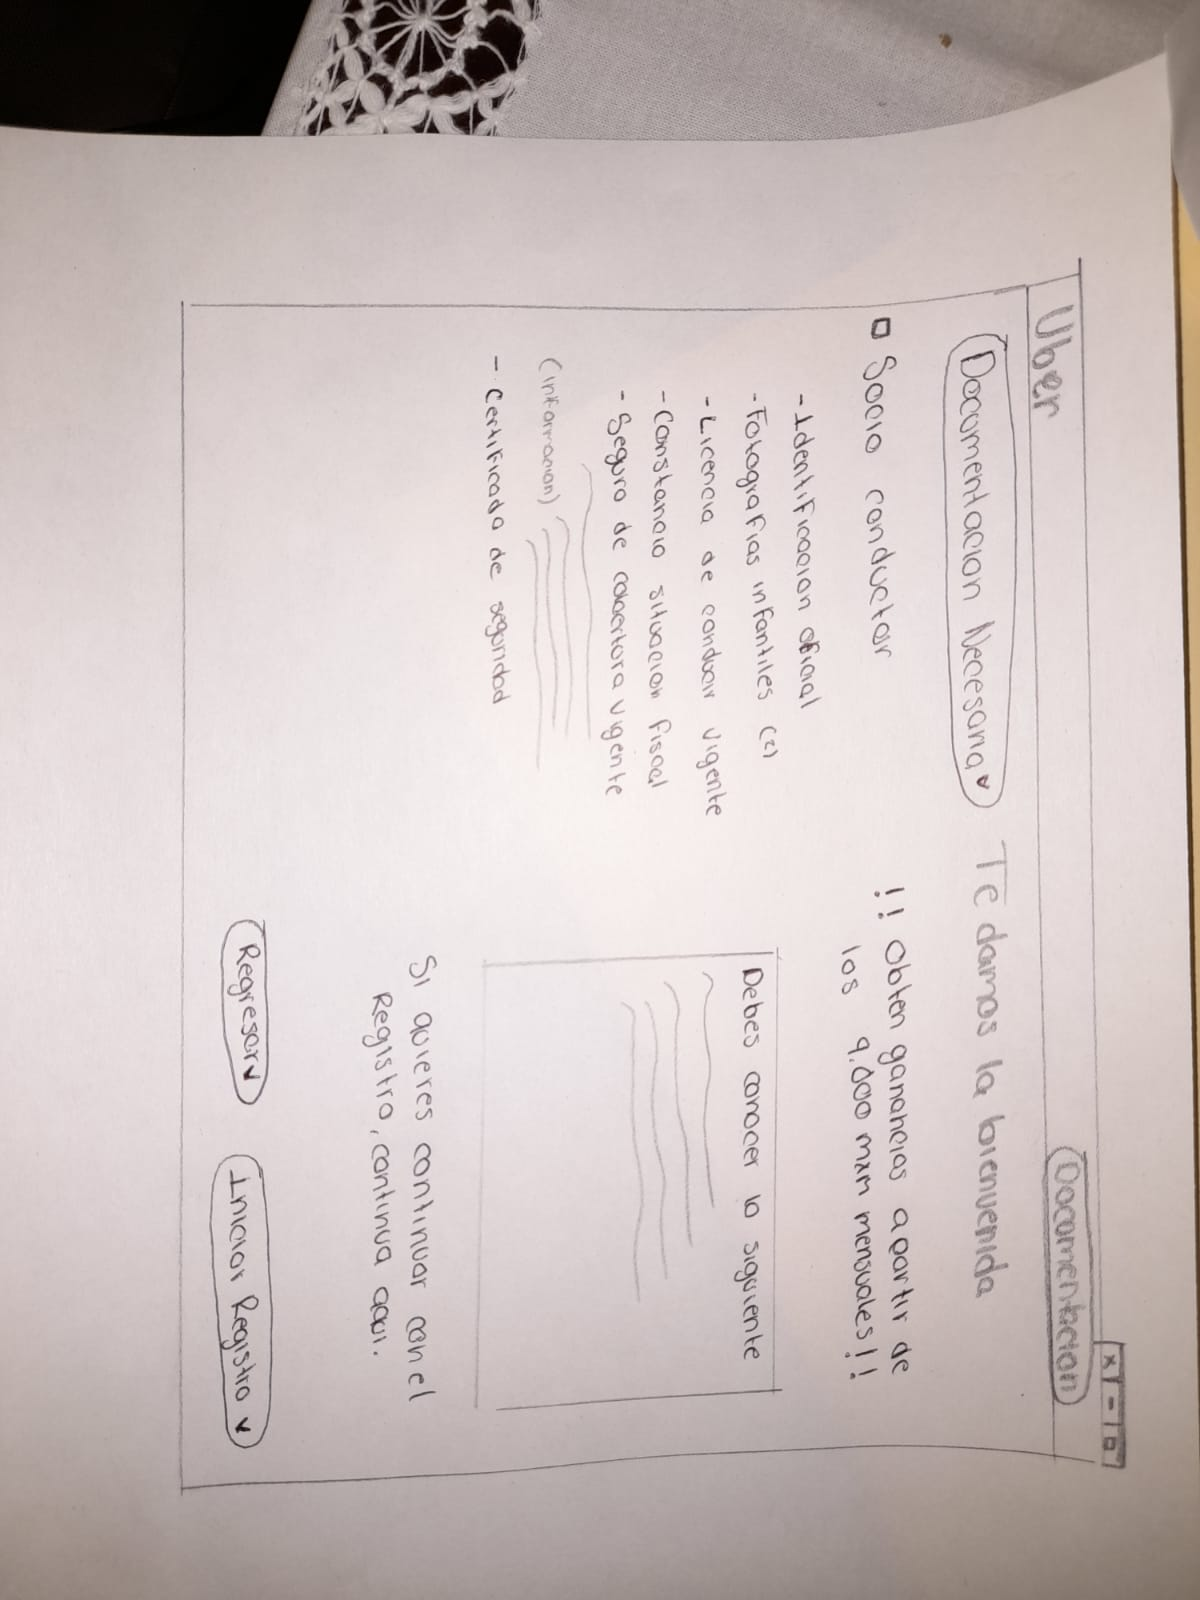 x - o
Uber
Documentacion
Documentacion Necesaria
Te damos la bienvenida
Socio conductor
- Identificacion oficial
- Fotografias infantiles (2)
- Licencia de conducir vigente
- Constancia situacion fiscal
- Seguro de cobertura vigente
(informacion)
- Certificado de seguridad
!! Obten ganancias apartir de
los 9.000 mxm mensuales!!
Debes conocer lo siguiente
Si quieres continuar con el
Registro, continua aqui.
Regresar
Iniciar Registro